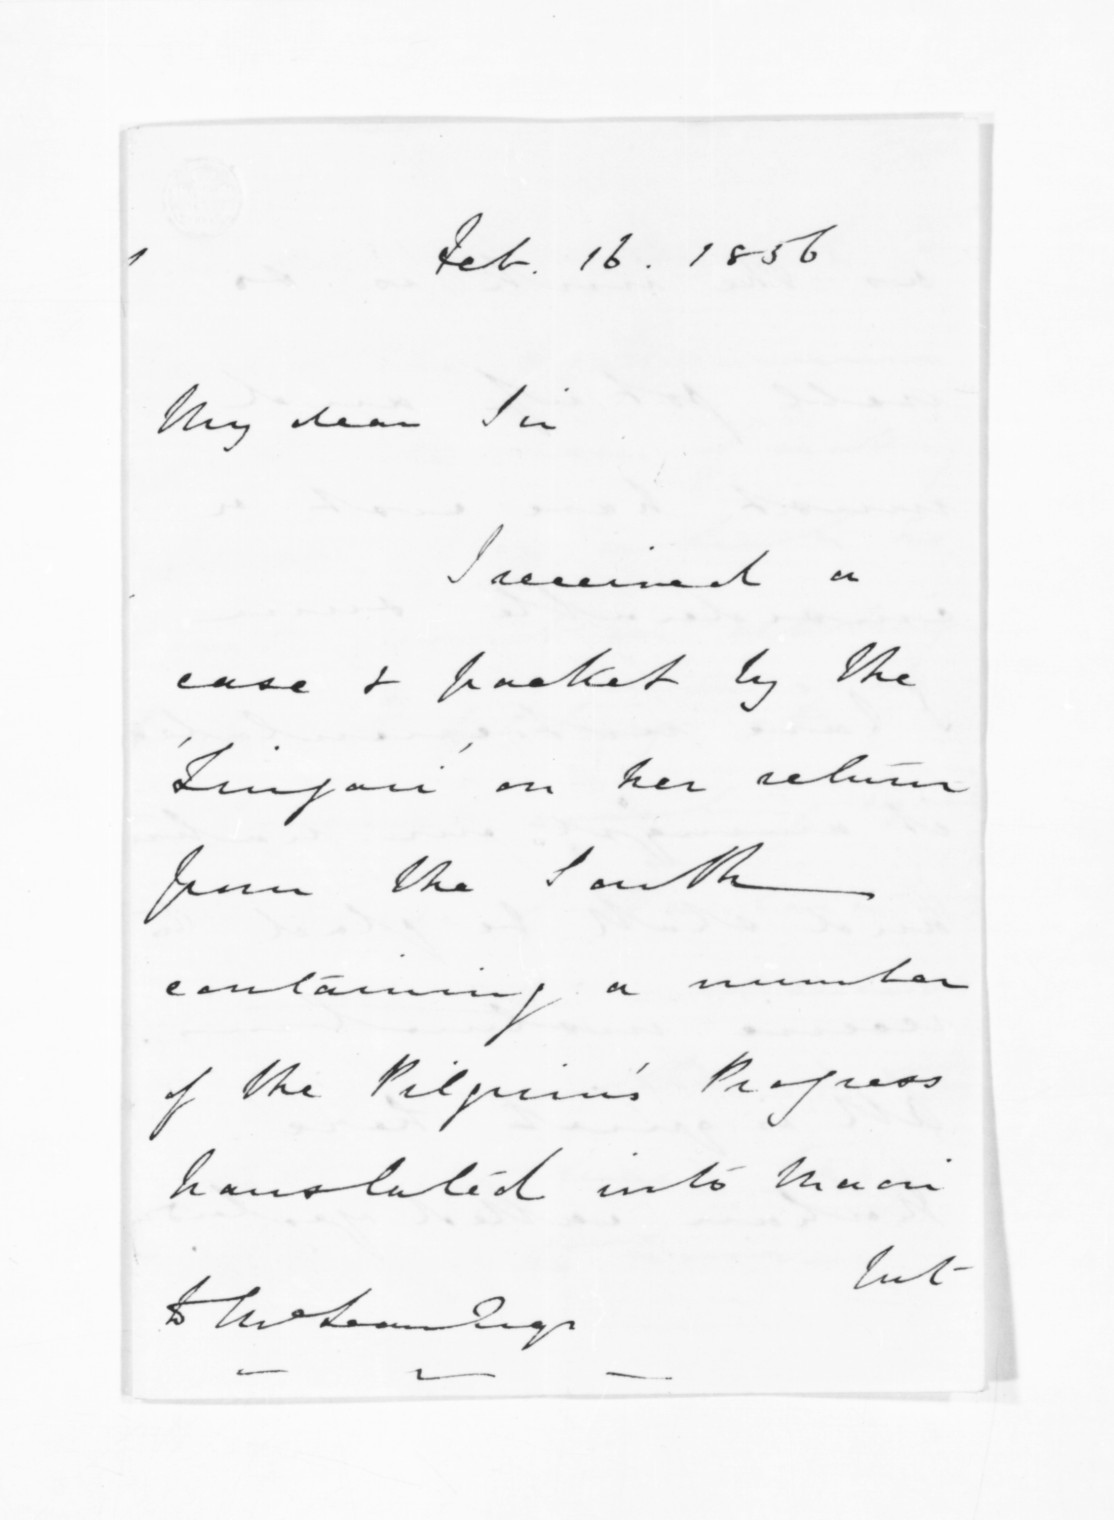 Feb. 16. 1856
My dear Sir
I received a
case & packet by the
'Zingari' on her return
from the South
containing a number
of the Pilgrim's Progress
translated into Maori
but
D McLean Esqr